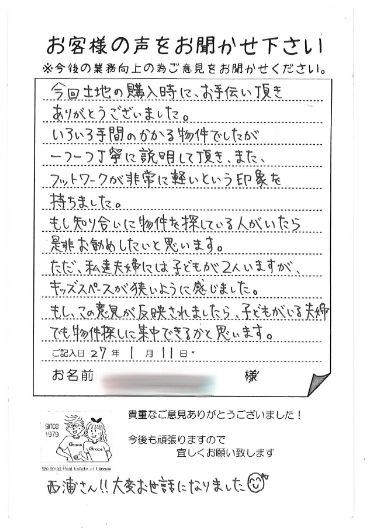 お客様の声をお聞かせ下さい
※今後の業務向上の為ご意見をお聞かせください。
今回土地の購入時に、お手伝い頂き
ありがとうございました。
いろいろ手間のかかる物件でしたが
一つ一つ丁寧に説明して頂き、また、
フットワークが非常に軽いという印象を
持ちました。
もし知り合いに物件を探している人がいたら
是非お勧めしたいと思います。
ただ、私達夫婦には子どもが2人いますが、
キッズスペースが狭いように感じました。
もし、この意見が反映されましたら、子どもがいる夫婦
でも物件探しに集中できるかと思います。
ご記入日 27年 1月 11日
お名前 様
since
1979
Grace
Grace
貴重なご意見ありがとうございました！
今後も頑張りますので
宜しくお願い致します
西浦さん!!大変お世話になりました